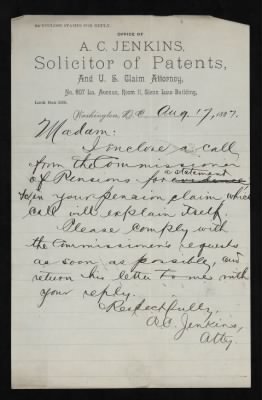 ENCLOSE STAMPS FOR REPLY.
OFFICE OF
A. C. JENKINS,
Solicitor of Patents,
And U. S. Claim Attorney,
No. 607 La. Avenue, Room 11, Glenn Law Building,
Lock Box
Washington, D. C. Aug. 17, 1887.
Madam:
I enclose a call
from the Commissioner
a statement
of Pensions for evidence
in your pension claim, which
call will explain itself.
Please comply with
the Commissioner's requests
as soon as possible, and
return his letter to me with
your reply.
Respectfully,
A.C. Jenkins,
Atty.